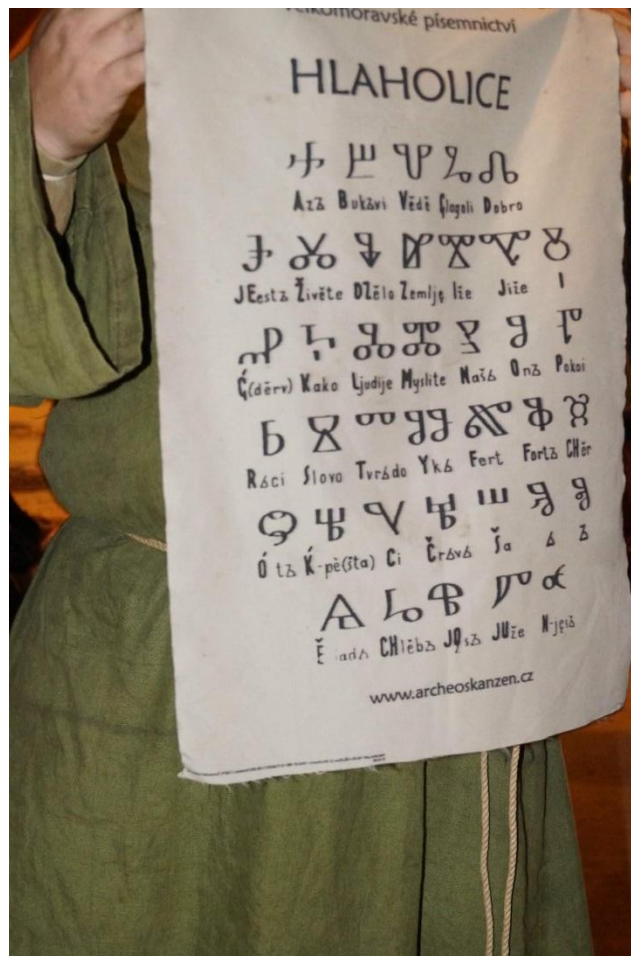 velkomoravské písemnictví
HLAHOLICE
Ⰰ Ⰱ Ⰲ Ⰳ Ⰴ
Azъ Bukъvi Vědě Glagoli Dobro
Ⰵ Ⰶ Ⰷ Ⰸ Ⰹ
JEestъ Živěte DZělo Zemlję Iže Jiže I
Ⰼ Ⰽ Ⰾ Ⰿ Ⱀ Ⱁ Ⱂ
Ǵ(děrv) Kako Ljudije Myslite Našь Onъ Pokoi
Ⱃ Ⱄ Ⱅ Ⱆ Ⱇ
Rьci Slovo Tvrьdo Ykъ Fert Fortъ CHěr
Ótъ Ḱ-pě(šta) Ci Črъvъ Ša ь ъ
CHlěbъ JǪsъ JUže N-jęsъ
www.archeoskanzen.cz